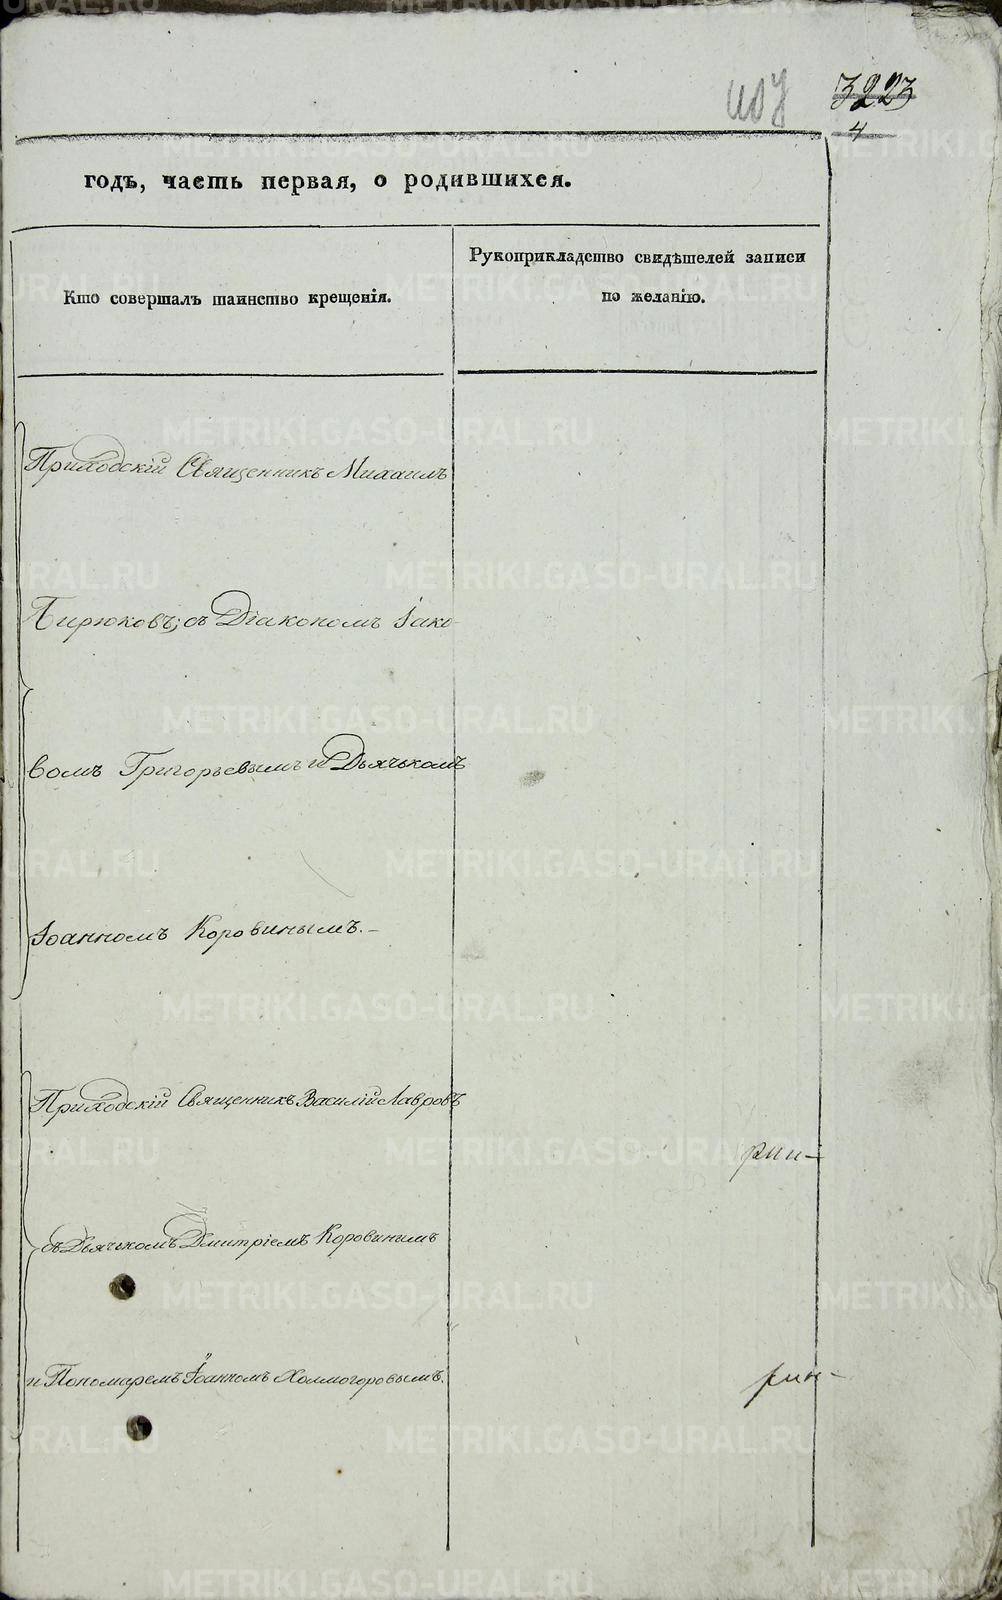 3223
4
годъ, часть первая, о родившихся.
Кто совершалъ таинство крещенія.
Рукоприкладство свидѣтелей записи
по желанію.
Приходскій Священникъ Михаилъ
Бирюковъ; съ Діакономъ Іако-
вомъ Григорьевымъ и Дьячькомъ
Іоанномъ Коровинымъ.-
Приходскій Священникъ Василій Лавровъ
съ Дьячькомъ Дмитріемъ Коровинымъ
и Пономаремъ Іоанномъ Холмогоровымъ.
METRIKI.GASO-URAL.RU